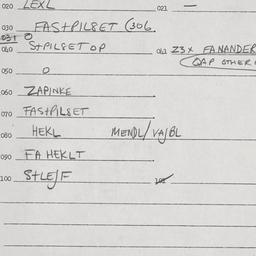 020 LEXL 021 —
030 FASTPILSET (306
031 0
040 STPILSET OP 041 23X FANANDER
(OAP OTHER
050 0
060 ZAPINKE
070 FASTPILSET
080 HEKL MENDL/VAJBL
090 FA HEKLT
100 STLEJF 101